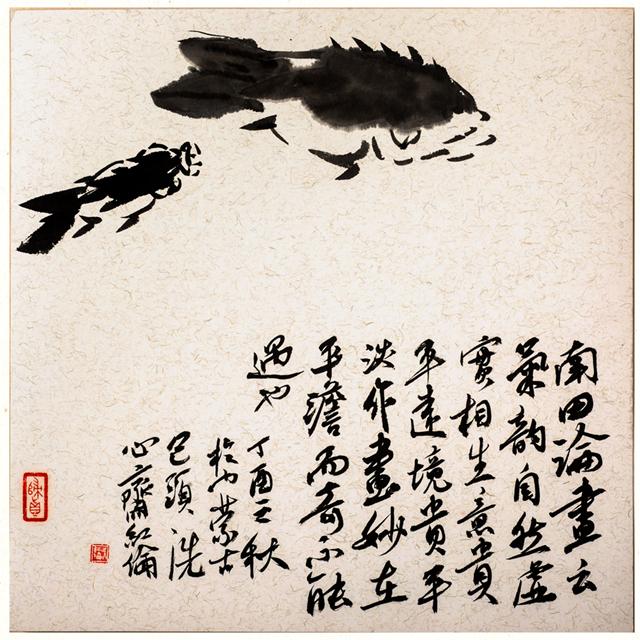 南田論畫云
氣韵自然虛
實相生意貴
平遠境貴平
淡作畫妙在
平澹而奇不能
過也
丁酉之秋
於內蒙古
包頭洗
心齋紅倫